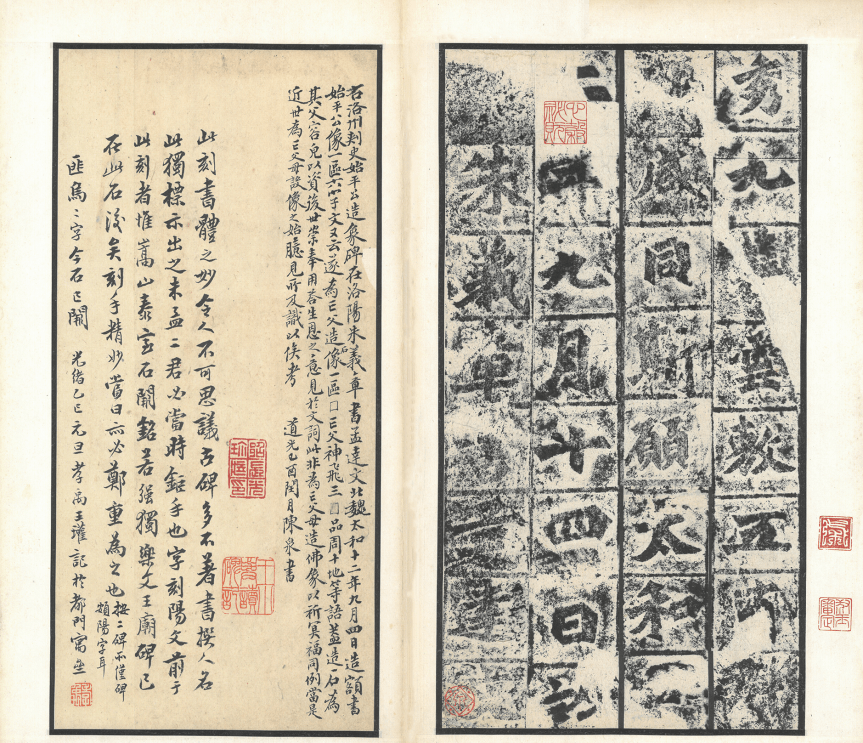 秀九空敷五
咸同斯願太和
二年九月十四日訖
朱義章書
石洛州刾史始平公造象碑在洛陽朱義章書孟達文北魏太和十二年九月四日造額書
始平公像一區六字文又云遂為亡父造石像一區囗亡父神飛三囗囗品周十地等語蓋造石為
其父容皃以資後世崇奉用荅生恩之意見於文詞此非為亡父母造佛像以祈冥福同例當是
近世為亡父母設像之始臆見所及識以俟考 道光乙酉閏月陳泉書
此刻書體之妙令人不可思議古碑多不著書撰人名
此獨標示出之朱孟二君必當時鉅手也字刻陽文前于
此刻者惟嵩山泰室石闕銘若强獨樂文王廟碑已
在此石後矣刻手精妙當日亦必鄭重為之也按二碑不僅碑
額陽字耳
匪烏二字今石已闕 光緒乙巳元旦孝禹王瓘記於都門寓𠫇